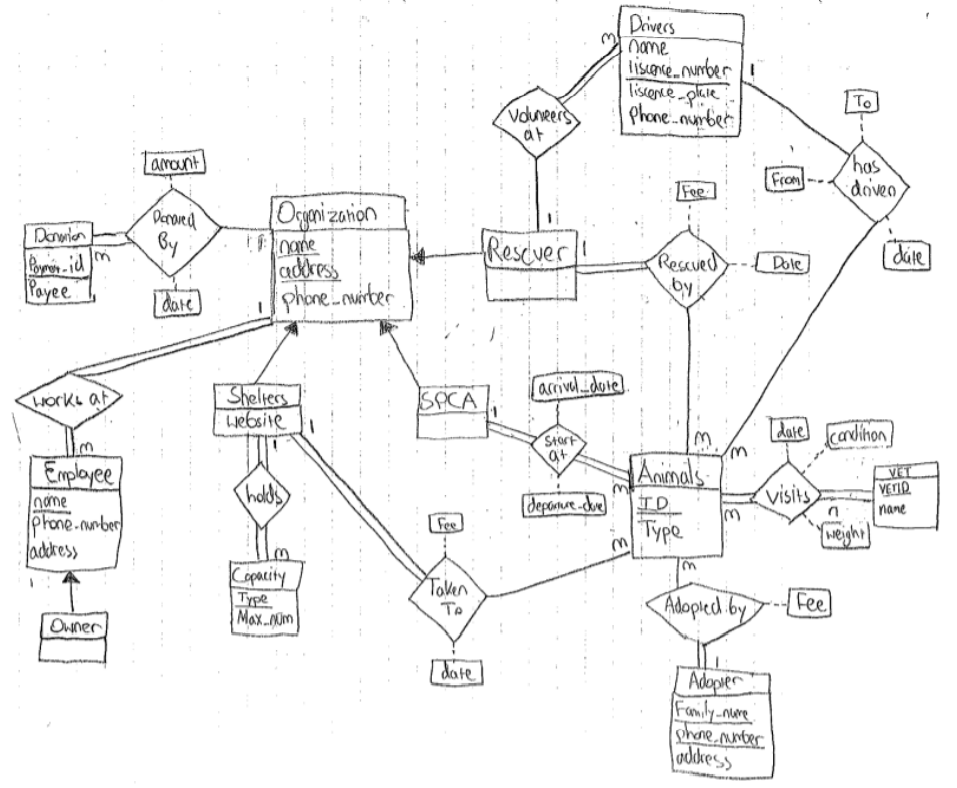 Drivers
name
liscence_number
liscence_plate
phone_number
m
1
Volunteers
at
1
To
From
has
driven
date
m
amount
Donated
By
date
Donation
Payment_id
Payee
m
1
Organization
name
address
phone_number
1
Rescuer
1
Fee
Rescued
by
Date
m
works at
m
Employee
name
phone_number
address
Owner
Shelters
website
1
1
holds
m
Capacity
Type
Max_num
SPCA
1
arrival_date
start
at
departure_date
m
Animals
ID
Type
m
m
m
date
condition
visits
weight
n
VET
VETID
name
Fee
Taken
To
date
Adopted by
Fee
1
Adopter
Family_name
phone_number
address